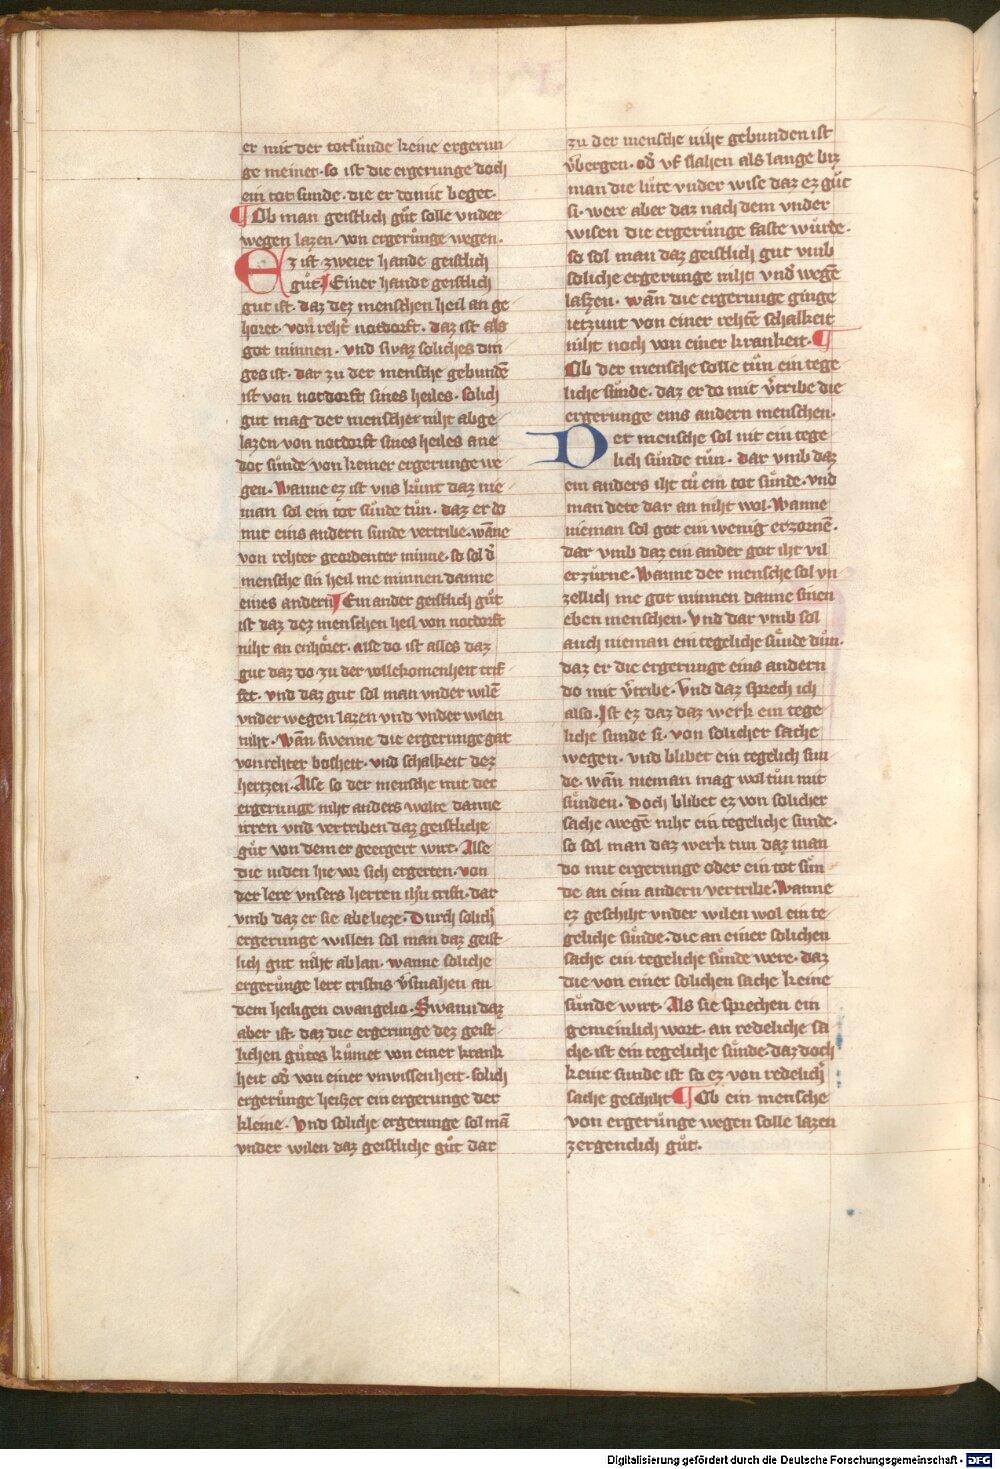 er mit der totsünde keine ergerun
ge meinet. so ist die ergerunge doch
ein tot sunde. die er domit beget.
¶ Ob man geistlich gůt solle vnder
wegen lazen. von ergerůnge wegen.
Ez ist zweier hande geistlich
gůt. Einer hande geistlich
gut ist. daz dez menschen heil an ge
horet. von reht̕ notdorft. daz ist als
got minnen. vnd swaz soliches din
ges ist. dar zu der mensche gebundē
ist von notdorft sines heiles. solich
gut mag der mensche niht abge
lazen von notdorft sines heiles ane
dot sůnde von keiner ergerunge we
gen. Wanne ez ist vns kunt daz nie
man sol ein tot sůnde tůn. daz er do
mit eins andern sunde vertribe. wāne
von rehter geordenter minne. so sol d̕
mensche sin heil me minnen danne
eines andern. Ein ander geistlich gůt
ist daz dez menschen heil von notdorft
niht an enhöret. alse do ist alles daz
gut daz do zu der vollekomenheit trif
fet. vnd daz gut sol man vnder wilē
vnder wegen lazen vnd vnder wilen
niht. Wān swenne die ergerunge gat
von rehter bosheit. vnd schalkeit dez
hertzen. Alse so der mensche mit der
ergerunge niht anders wolte danne
irren vnd vertriben daz geistliche
gůt von dem er geergert wirt. Alse
die iuden hie vor sich ergerten. von
der lere vnsers herren ihū cristi. dar
vmb daz er sie abe lieze. Durch solich̕
ergerunge willen sol man daz geist
lich gut niht ablan. wanne soliche
ergerůnge lert cristus v̕smahen an
dem heiligen ewangelio. Swann daz
aber ist. daz die ergerunge dez geist
lichen gůtes kůmet von einer krank
heit od̕ von einer vnwissenheit. solich
ergerůnge heiszet ein ergerunge der
kleine. Vnd soliche ergerunge sol mā
vnder wilen daz geistliche gůt dar
zu der mensche niht gebunden ist
v̕bergen. od̕ vf slahen als lange biz
man die lůte vnder wise daz ez gůt
si. were aber daz nach dem vnder
wisen die ergerůnge faste wůrde.
so sol man daz geistlich gut vmb
soliche ergerunge niht vnd̕ wegē
laszen. wān die ergerunge ginge
ietzunt von einer rehtē schalkeit
niht noch von einer krankeit. ¶
Ob der mensche solle tůn ein tege
liche sůnde. daz er do mit v̕tribe die
ergerunge eins andern menschen.
Der mensche sol nit ein tege
lich sůnde tůn. dar vmb daz
ein anders iht tů ein tot sůnde. vnd
man dete dar an niht wol. Wanne
nieman sol got ein wenig erzornē.
dar vmb daz ein ander got iht vil
erzürne. Wanne der mensche sol vn
zellich me got minnen danne sinen
eben menschen. Vnd dar vmb sol
auch nieman ein tegeliche sůnde důn.
daz er die ergerunge eins andern
do mit v̕tribe. Vnd daz sprech ich
also. Ist ez daz daz werk ein tege
liche sunde si. von solicher sache
wegen. vnd blibet ein tegelich sun
de. wān nieman mag wol tůn mit
sůnden. Doch blibet ez von solicher
sache wegē niht ein tegeliche sunde.
so sol man daz werk tun daz man
do mit ergerunge oder ein tot sůn
de an eim andern vertribe. Wanne
ez geschiht vnder wilen wol ein te
geliche sůnde. die an einer solichen
sache ein tegeliche sůnde were. daz
die von einer solichen sache keine
sůnde wirt. Als sie sprechen ein
gemeinlich wort. an redeliche sa
che. ist ein tegeliche sůnde. daz doch
keine sunde ist so ez von redelich̕
sache geschiht ¶ Ob ein mensche
von ergerůnge wegen solle lazen
zergenclich gůt.
Digitalisierung gefördert durch die Deutsche Forschungsgemeinschaft - DFG